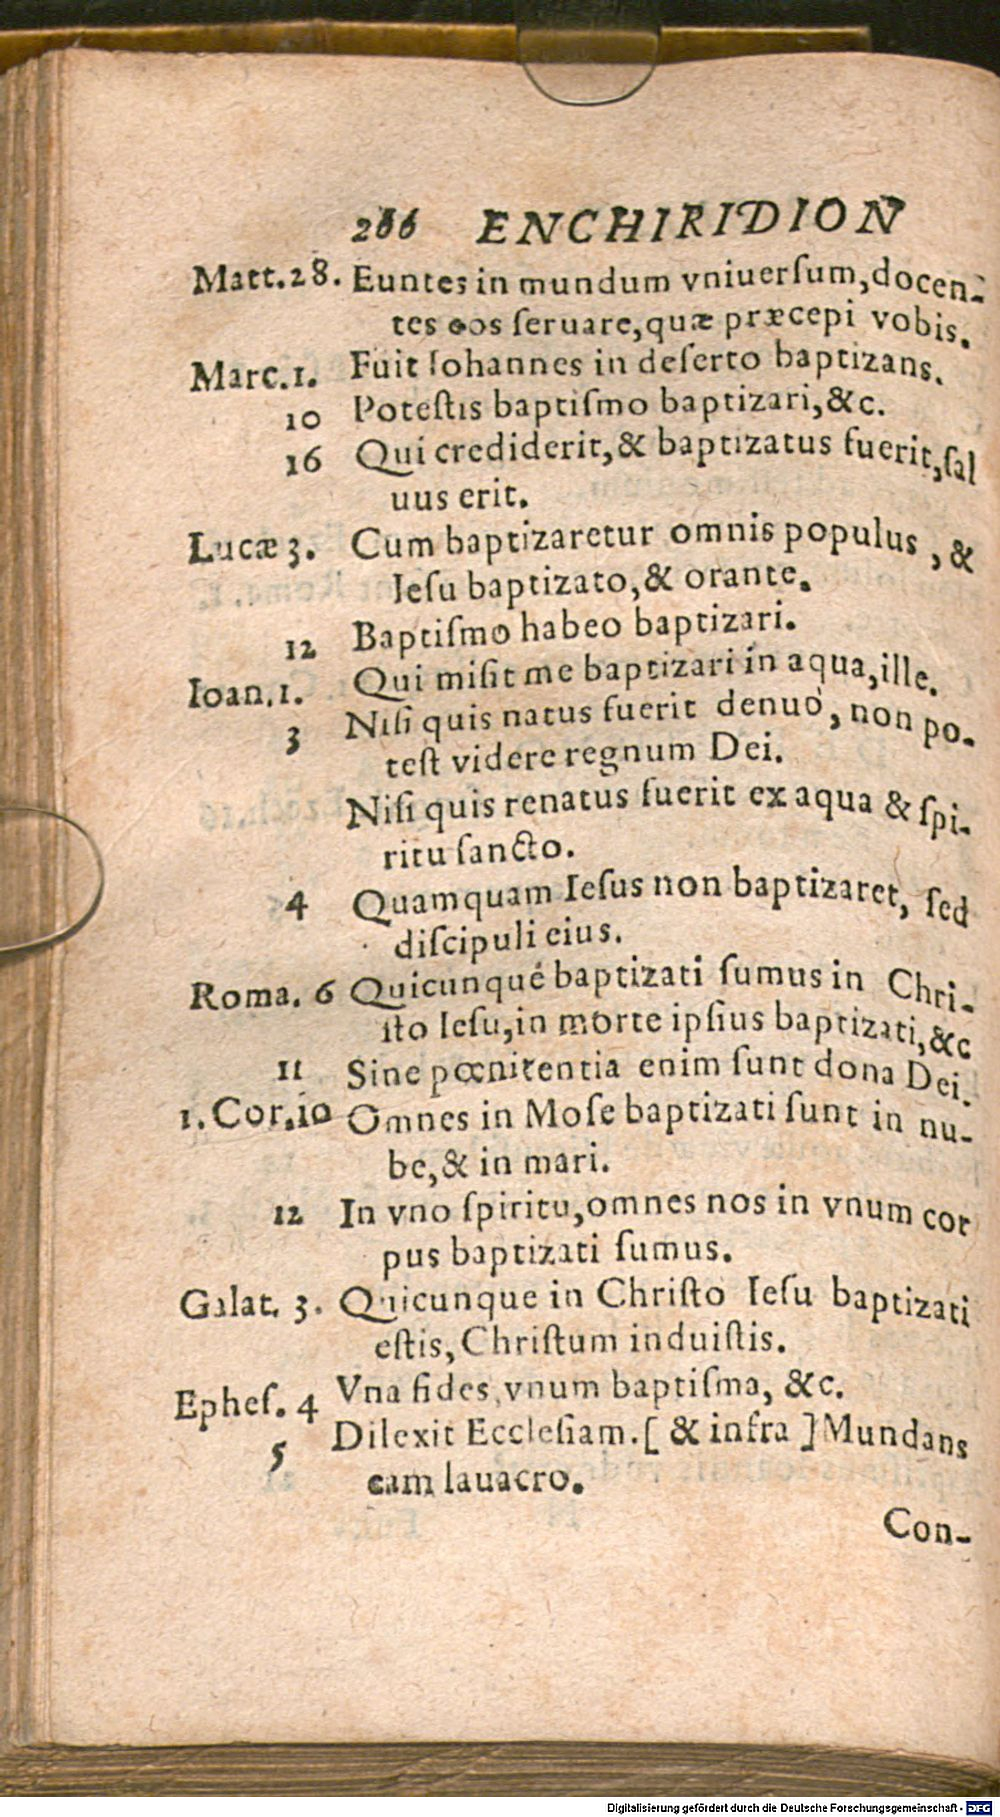 266 ENCHIRIDION
Matt.28. Euntes in mundum vniuerſum,docen-
tes eos ſeruare,quæ præcepi vobis.
Marc.1. Fuit Iohannes in deſerto baptizans.
10 Poteſtis baptiſmo baptizari,&c.
16 Qui crediderit,& baptizatus fuerit,ſal
uus erit.
Lucæ 3. Cum baptizaretur omnis populus , &
Ieſu baptizato,& orante.
12 Baptiſmo habeo baptizari.
Ioan.1. Qui miſit me baptizari in aqua,ille.
3 Niſi quis natus fuerit denuò, non po-
teſt videre regnum Dei.
Niſi quis renatus fuerit ex aqua & ſpi-
ritu ſancto.
4 Quamquam Ieſus non baptizaret, ſed
diſcipuli eius.
Roma. 6 Quicunque baptizati ſumus in Chri-
ſto Ieſu,in morte ipſius baptizati,&c
11 Sine pœnitentia enim ſunt dona Dei.
1. Cor.10 Omnes in Moſe baptizati ſunt in nu-
be,& in mari.
12 In vno ſpiritu,omnes nos in vnum cor
pus baptizati ſumus.
Galat. 3. Quicunque in Chriſto Ieſu baptizati
eſtis, Chriſtum induiſtis.
Epheſ. 4 Vna fides,vnum baptiſma, &c.
5 Dilexit Eccleſiam.[ & infra ]Mundans
eam lauacro.
Con-
Digitalisierung gefördert durch die Deutsche Forschungsgemeinschaft - DFG